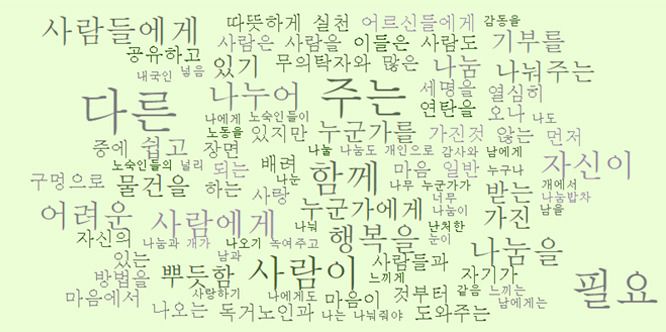 사람들에게 따뜻하게 실천 어르신들에게 감동을
공유하고 사람은 사람을 이들은 사람도 기부를
내국인 넣음 있기 무의탁자와 많은 나눔 나눠주는
다른 나누어 주는 세명을 열심히
나에게 노숙인들이 연탄을 오나 나도
노동을 있지만 누군가를 가진것 않는 먼저
중에 쉽고 장면 나눌 나눔도 개인으로 감사와 남에게
노숙인들의 널리 되는 배려 함께 마음 일반 누구나 자신이
구멍으로 물건을 하는 나눈 나무 누군가가 받는 개에서
사랑 너무 나눔밥차
어려운 사람에게 나눠 누군가에게 나눔이 가진 남을
자신의 나눔과 개가 나오기 녹여주고 행복을 난처한 눈이 나눔을
있는 남과 사람이 사람들과
방법을 뿌듯함 느끼게 자기가 필요
마음에서 사랑하기 나에게도 마음이 것부터 같음 느끼는
나오는 독거노인과 나는 나눠줘야 도와주는 남에게는